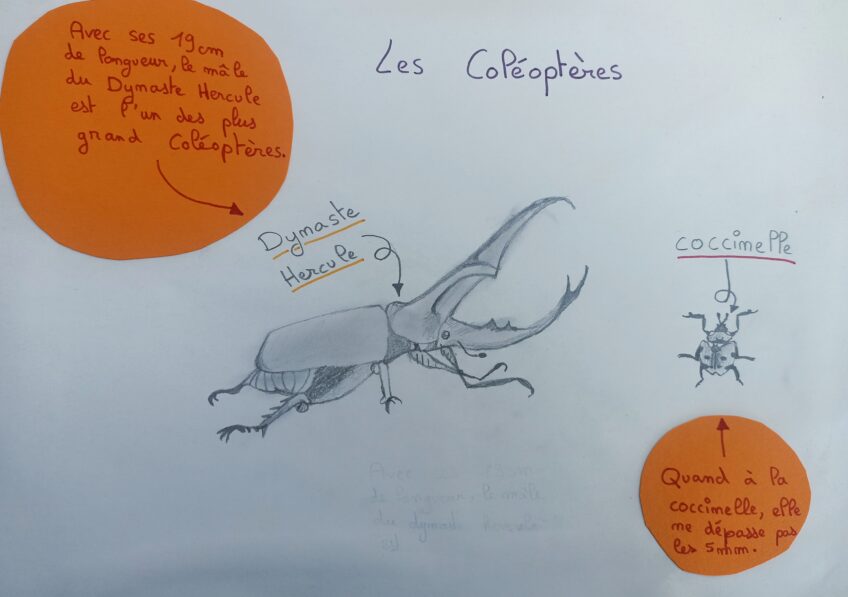 Avec ses 19cm
de longueur, le mâle
du Dymaste Hercule
est l'un des plus
grand Coléoptères.
Les Coléoptères
Dymaste
Hercule
coccinelle
Avec ses 19cm
de longueur, le mâle
du dymaste hercule
est
Quand à la
coccinelle, elle
ne dépasse pas
les 5mm.